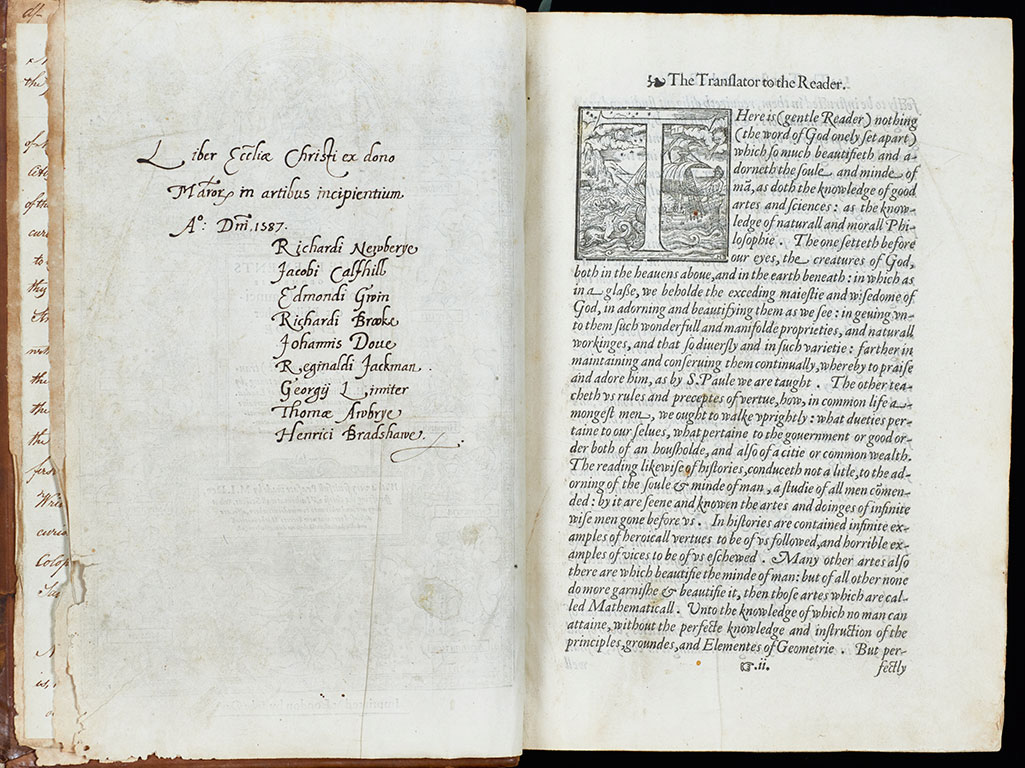 Liber Eccliæ Christi ex dono
in artibus incipientium
Aº: Dm̄. 1587.
Richardi Newberye
Jacobi Calfhill
Edmondi Gwin
Richardi Brooke
Johannis Doue
Reginaldi Jackman.
Georgij Limiter
Thomæ Awbrye
Henrici Bradshawe.
The Tranſlator to the Reader.
THere is (gentle Reader) nothing
(the word of God onely ſet apart)
which ſo much beautifieth and a-
dorneth the ſoule and minde of
mā, as doth the knowledge of good
artes and ſciences: as the know-
ledge of naturall and morall Phi-
loſophie. The one ſetteth before
our eyes, the creatures of God,
both in the heauens aboue, and in the earth beneath: in which as
in a glaſſe, we beholde the exceding maieſtie and wiſedome of
God, in adorning and beautifying them as we ſee: in geuing vn-
to them ſuch wonderfull and manifolde proprieties, and naturall
workinges, and that ſo diuerſly and in ſuch varietie: farther in
maintaining and conſeruing them continually, whereby to praiſe
and adore him, as by S. Paule we are taught. The other tea-
cheth vs rules and preceptes of vertue, how, in common life a-
mongeſt men, we ought to walke vprightly: what dueties per-
taine to our ſelues, what pertaine to the gouernment or good or-
der both of an houſholde, and alſo of a citie or common wealth.
The reading likewiſe of hiſtories, conduceth not a litle, to the ad-
orning of the ſoule & minde of man, a ſtudie of all men cōmen-
ded: by it are ſeene and knowen the artes and doinges of infinite
wiſe men gone before vs. In hiſtories are contained infinite ex-
amples of heroicall vertues to be of vs followed, and horrible ex-
amples of vices to be of vs eſchewed. Many other artes alſo
there are which beautifie the minde of man: but of all other none
do more garniſhe & beautifie it, then thoſe artes which are cal-
led Mathematicall. Unto the knowledge of which no man can
attaine, without the perfecte knowledge and inſtruction of the
principles, groundes, and Elementes of Geometrie. But per-
☞.ii. fectly